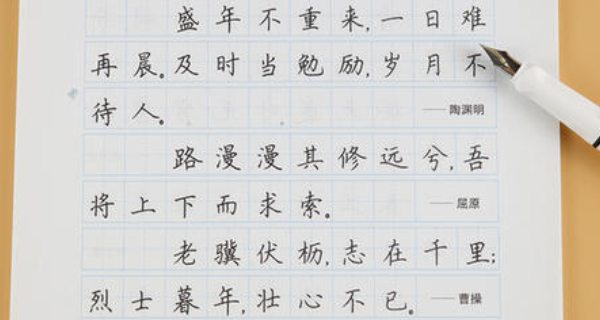 盛年不重来,一日难
再晨。及时当勉励,岁月不
待人。 ——陶渊明
路漫漫其修远兮,吾
将上下而求索。 ——屈原
老骥伏枥,志在千里;
烈士暮年,壮心不已。 ——曹操